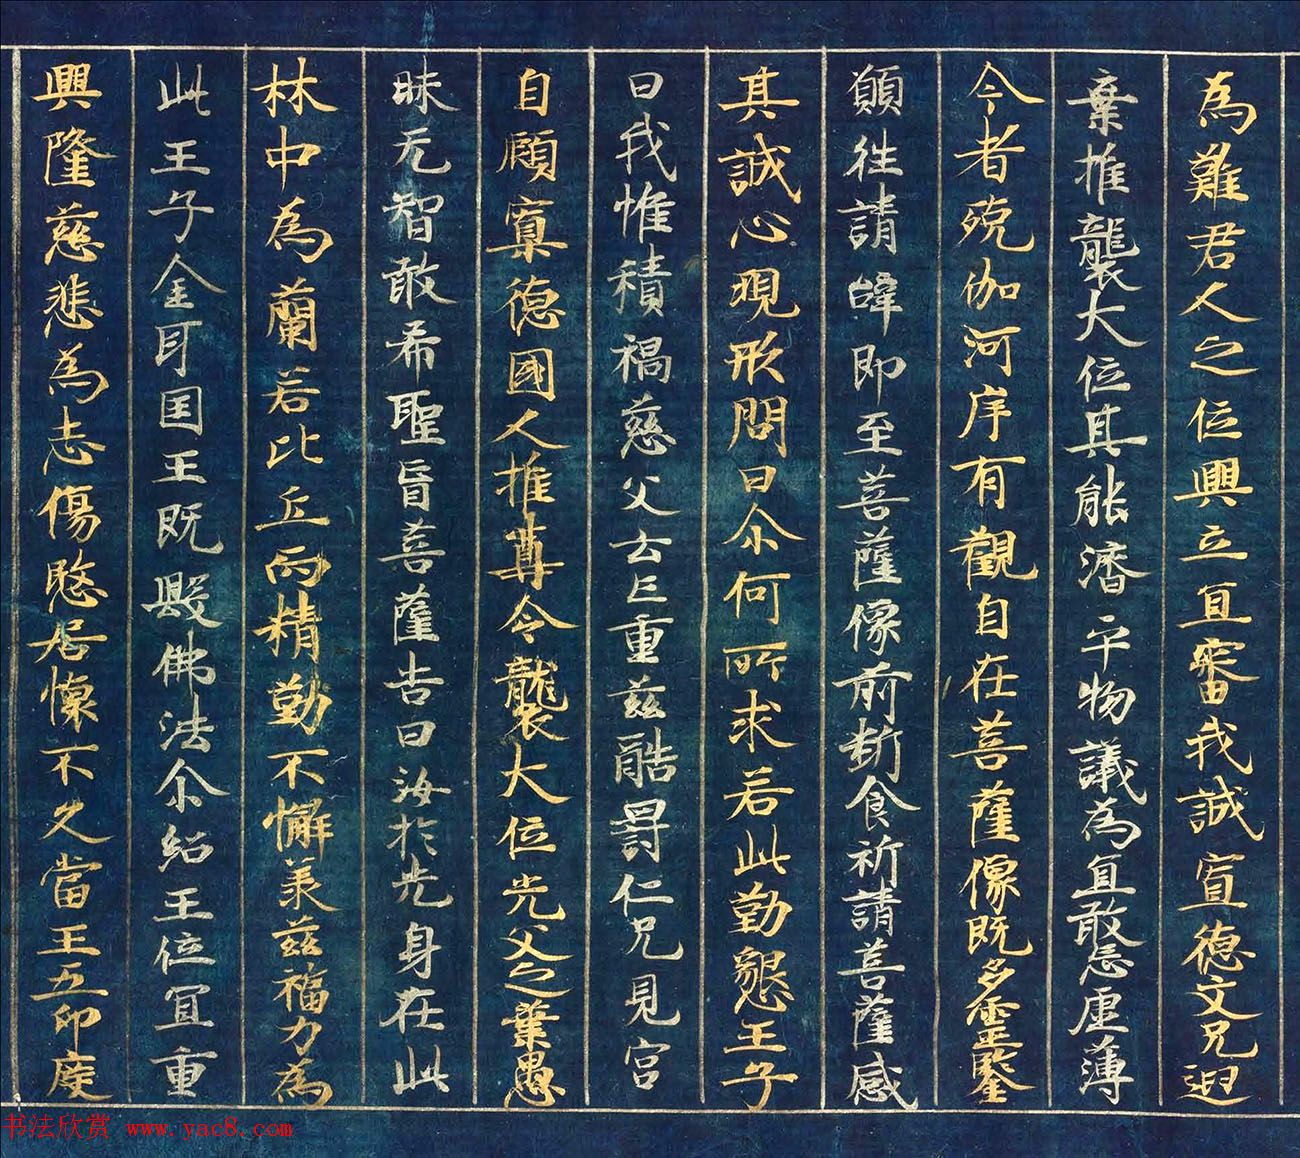 為難君人之位興立宜審我誠寡德父兄遐
棄推襲大位其能濟乎物議為宜敢忘虛薄
今者殑伽河岸有觀自在菩薩像既多靈鑒
願往請辭即至菩薩像前斷食祈請菩薩感
其誠心現形問曰尒何所求若此勤懇王子
曰我惟積禍慈父云亡重茲酷罰仁兄見害
自顧寡德國人推尊令襲大位光父之業愚
昧无智敢希聖旨菩薩告曰汝於先身在此
林中為蘭若比丘而精勤不懈美茲福力為
此王子金耳国王既毀佛法尒紹王位宜重
興隆慈悲為志傷愍居懷不久當王五印度
书法欣赏 www.yac8.com